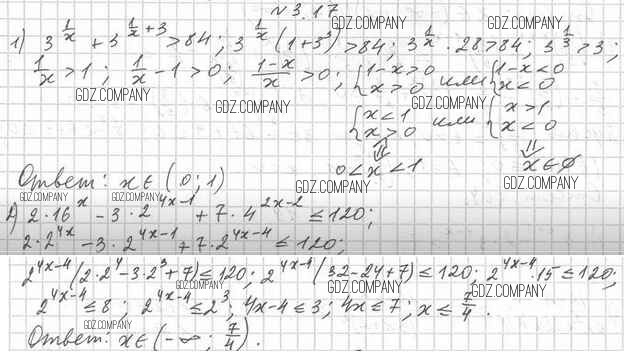 №3.17
1) 3^{1/x} + 3^{1/x+3} > 84; 3^{1/x}(1+3^3) > 84; 3^{1/x} · 28 > 84; 3^{1/3} > 3;
1/x > 1; 1/x - 1 > 0; (1-x)/x > 0; { 1-x > 0 x > 0 или { 1-x < 0 x < 0
{ x < 1 x > 0 или { x > 1 x < 0
⇓ ⇓
0 < x < 1 x ∈ ∅
Ответ: x ∈ (0; 1)
2) 2 · 16^x - 3 · 2^{4x-1} + 7 · 4^{2x-2} ≤ 120;
2 · 2^{4x} - 3 · 2^{4x-1} + 7 · 2^{4x-4} ≤ 120;
2^{4x-4}(2 · 2^4 - 3 · 2^3 + 7) ≤ 120; 2^{4x-4}(32 - 24 + 7) ≤ 120; 2^{4x-4} · 15 ≤ 120;
2^{4x-4} ≤ 8; 2^{4x-4} ≤ 2^3; 4x-4 ≤ 3; 4x ≤ 7; x ≤ 7/4.
Ответ: x ∈ (-∞; 7/4).
GDZ.COMPANY
GDZ.COMPANY
GDZ.COMPANY
GDZ.COMPANY
GDZ.COMPANY
GDZ.COMPANY
GDZ.COMPANY
GDZ.COMPANY
GDZ.COMPANY
GDZ.COMPANY
GDZ.COMPANY
GDZ.COMPANY